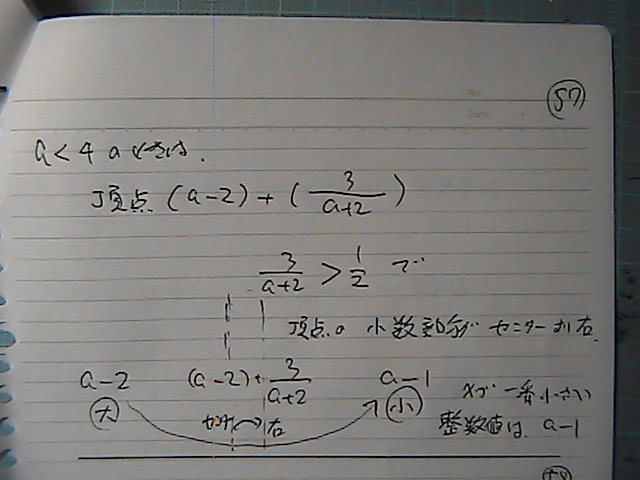 57
a<4 のときは.
頂点 (a-2)+(3/(a+2))
3/(a+2) > 1/2 で
頂点の 小数部分が センターより右.
a-2 (a-2)+3/(a+2) a-1
大 右 小
xが一番小さい
整数値は. a-1